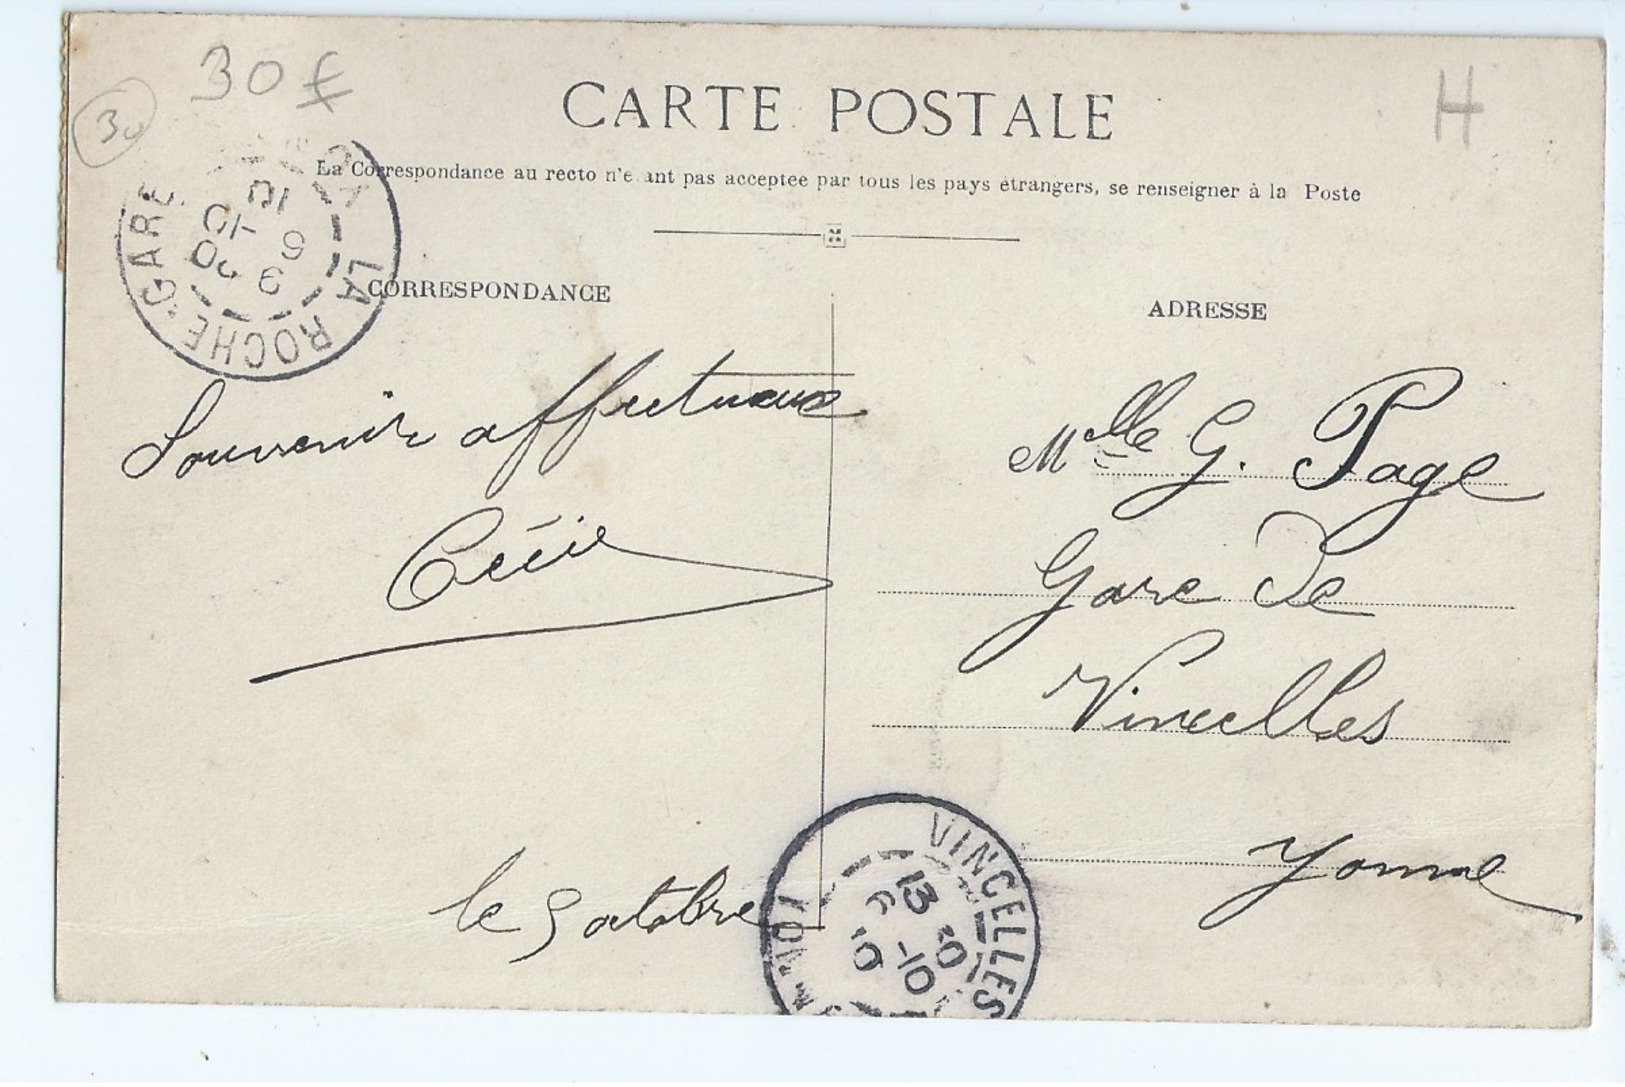 30 €
30
H
CARTE POSTALE
La Correspondance au recto n'étant pas acceptée par tous les pays étrangers, se renseigner à la Poste
LA ROCHE-GARE
CORRESPONDANCE
ADRESSE
Souvenir affectueux
Cécile
le 5 octobre
Melle G. Page
Gare de
Vincelles
Yonne
VINCELLES
13 30
6 -10
10